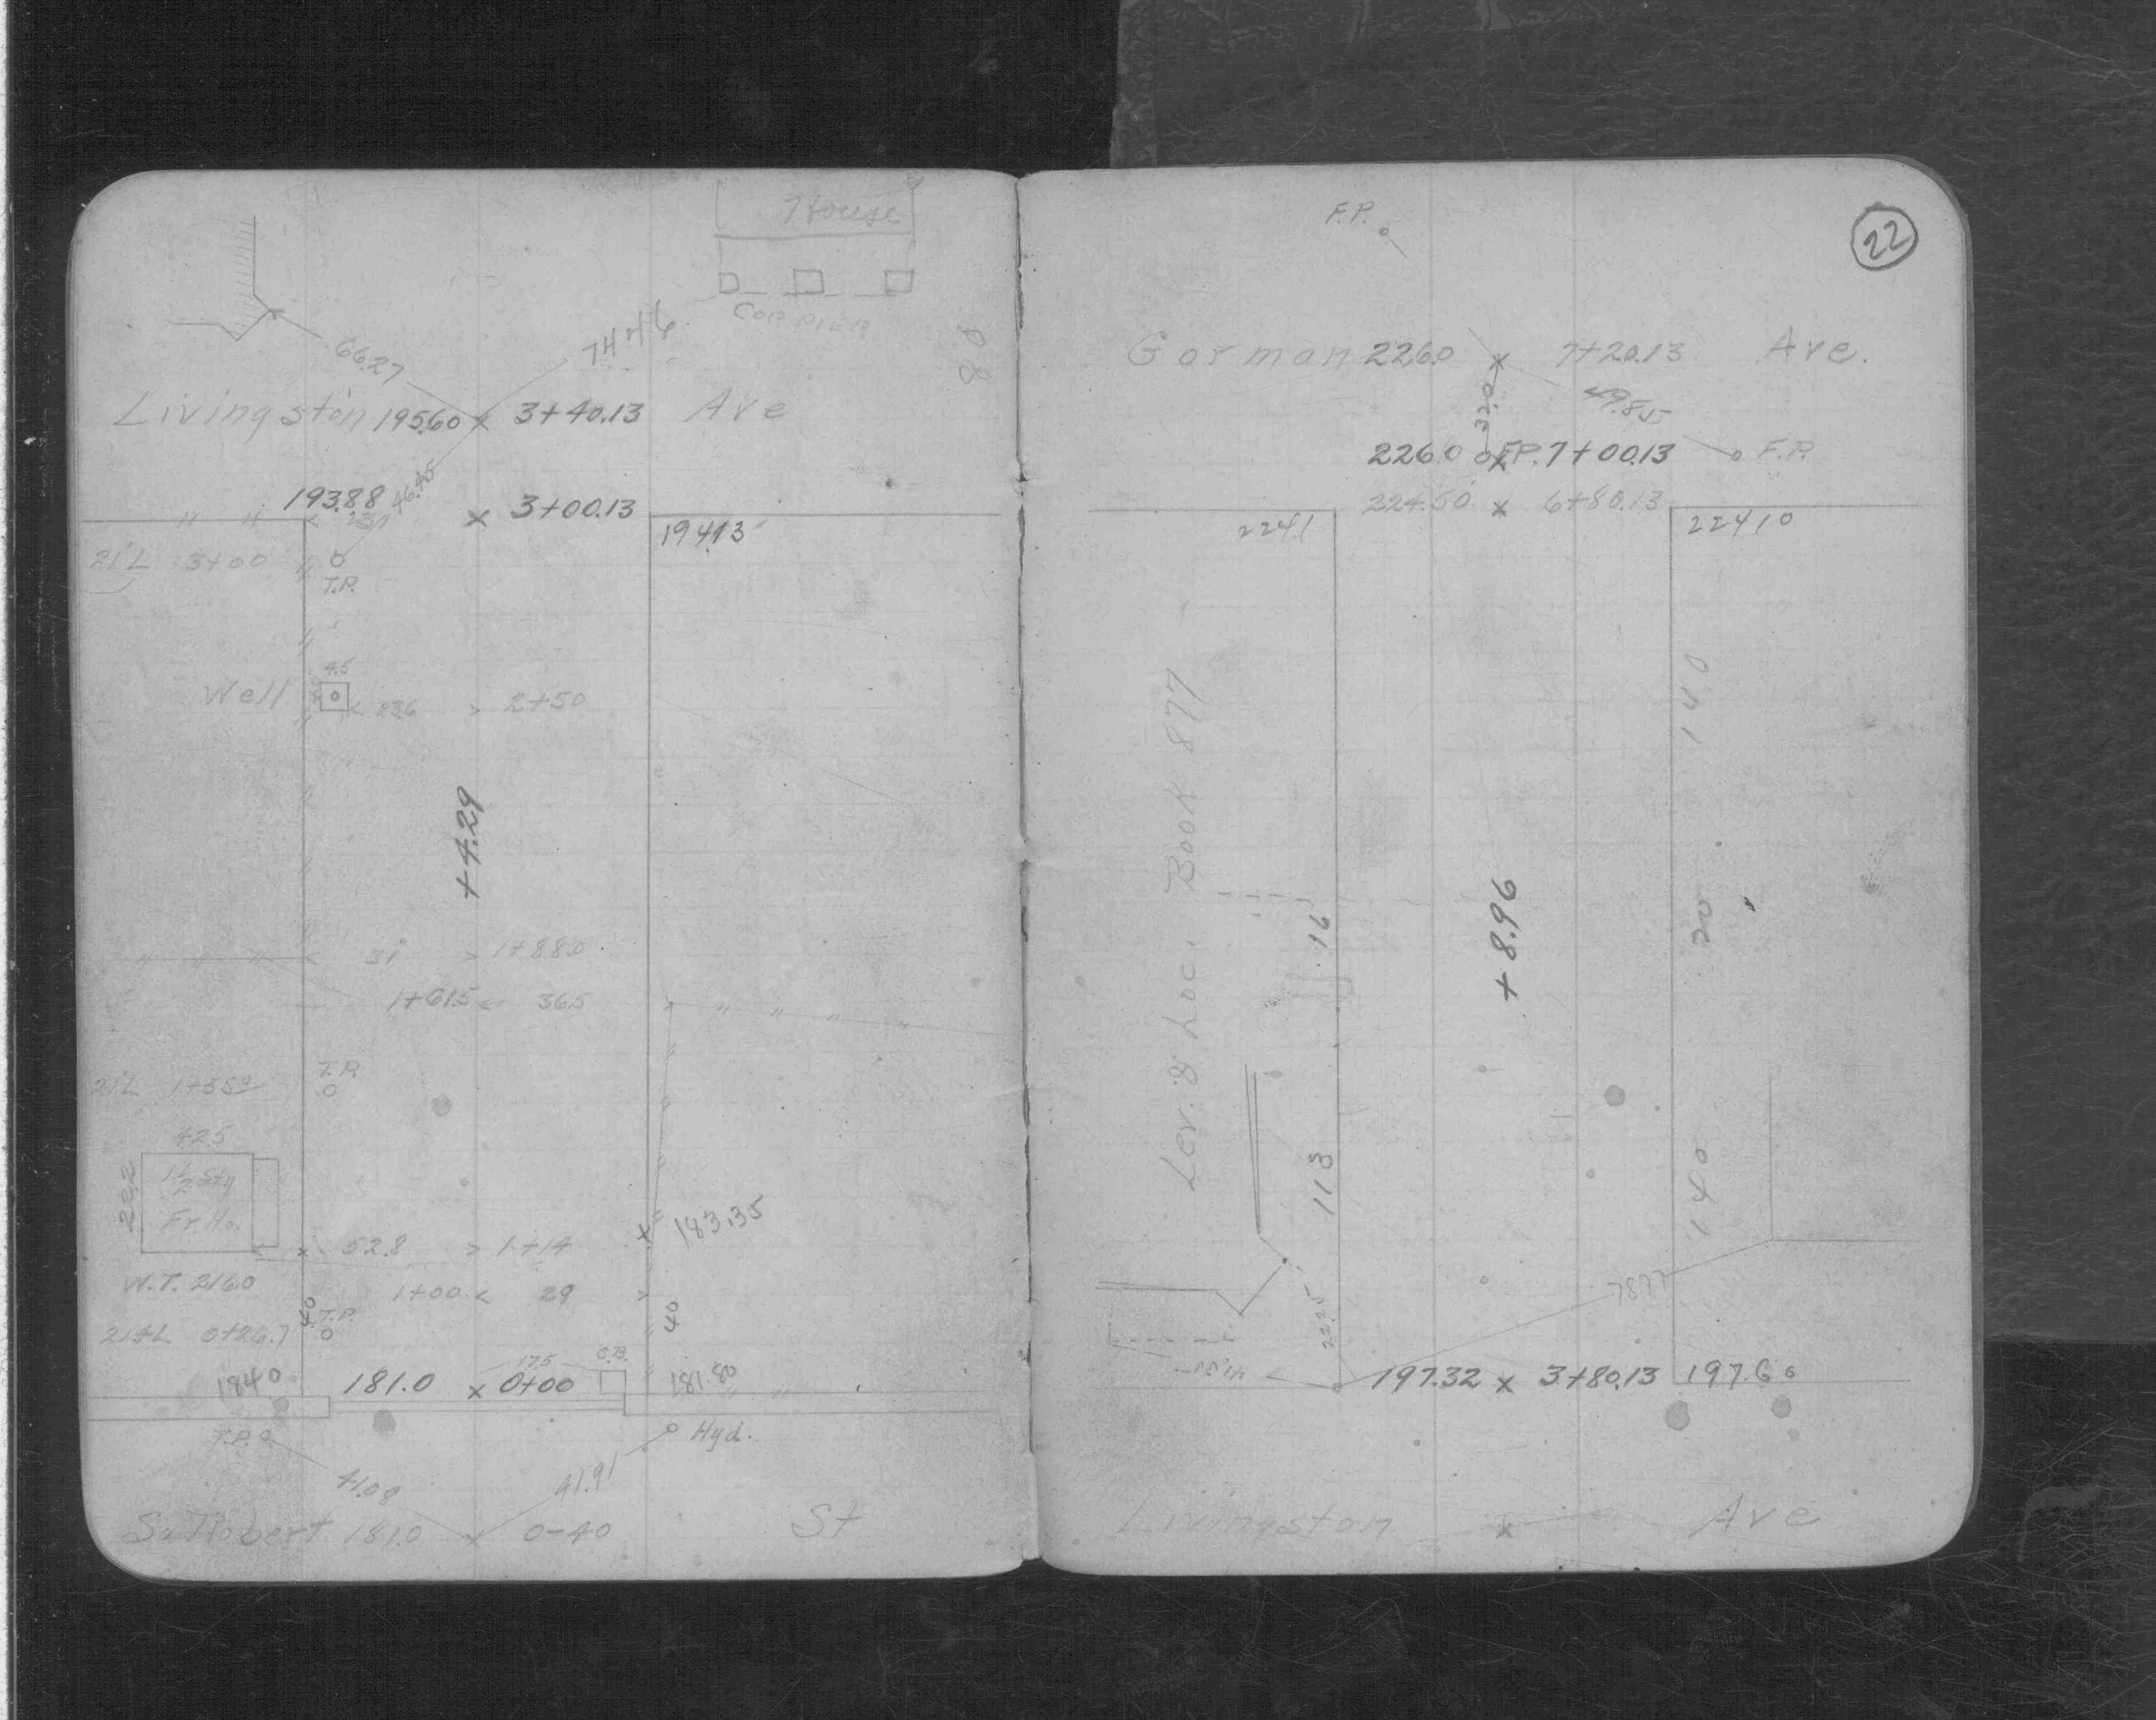 House
Cor Pier
66.27
74.46
80
Livingston 195.60 x 3+40.13 Ave
46.45
193.88 x 3+00.13
194.13
21'L 3+00
T.P.
4.5
Well
2+50
+4.29
31 1+88.0
1+61.5 36.5
T.P.
21'L 1+55.0
42.5
22.2
1½ Sty
Fr. Ho.
183.35
52.8 1+14
W.T. 216.0
1+00 29
40 T.P.
40
0+26.7
17.5 C.B.
184.0 181.0 x 0+00 181.80
T.P.
Hyd.
41.08
41.91
So. Robert 181.0 x 0-40 St
22
F.P.
Gorman 226.0 x 7+20.13 Ave.
37.0
49.85
226.0 x F.P. 7+00.13 F.P.
224.50 x 6+80.13
224.1
224.10
140
Lev. & Loc. Book 877
16
+8.96
20
113
140
78.77
22.25
197.32 x 3+80.13 197.60
Livingston x Ave